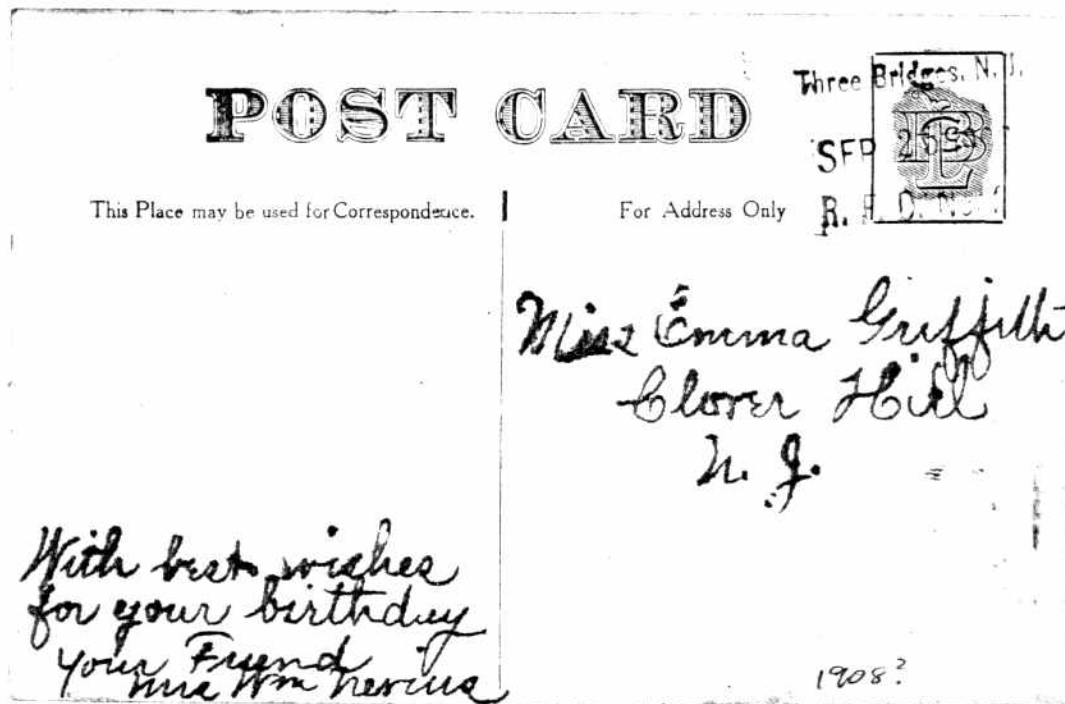 POST CARD
Three Bridges, N. J.
SEP 2
R. F. D. No.
This Place may be used for Correspondence.
For Address Only
Miss Emma Griffith
Clover Hill
N. J.
With best wishes
for your birthday
your Friend
Mrs Wm Nevius
1908?